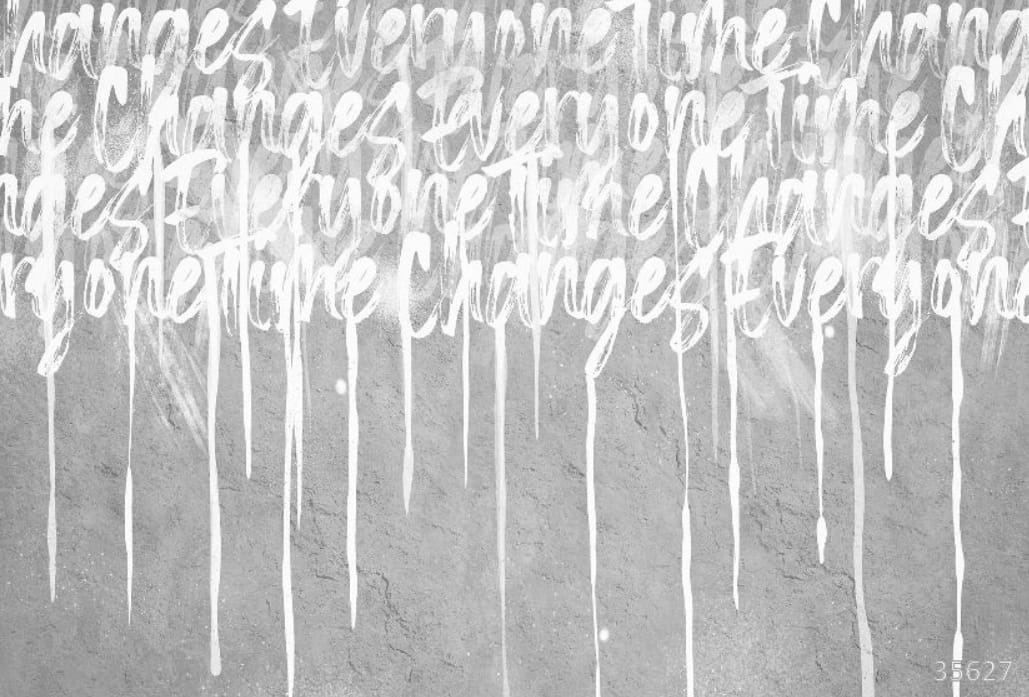 hanges Everyone Time Chang
me Changes Everyone Time Ch
nges Everyone Time Changes E
eryone Time Changes Everyone
35627